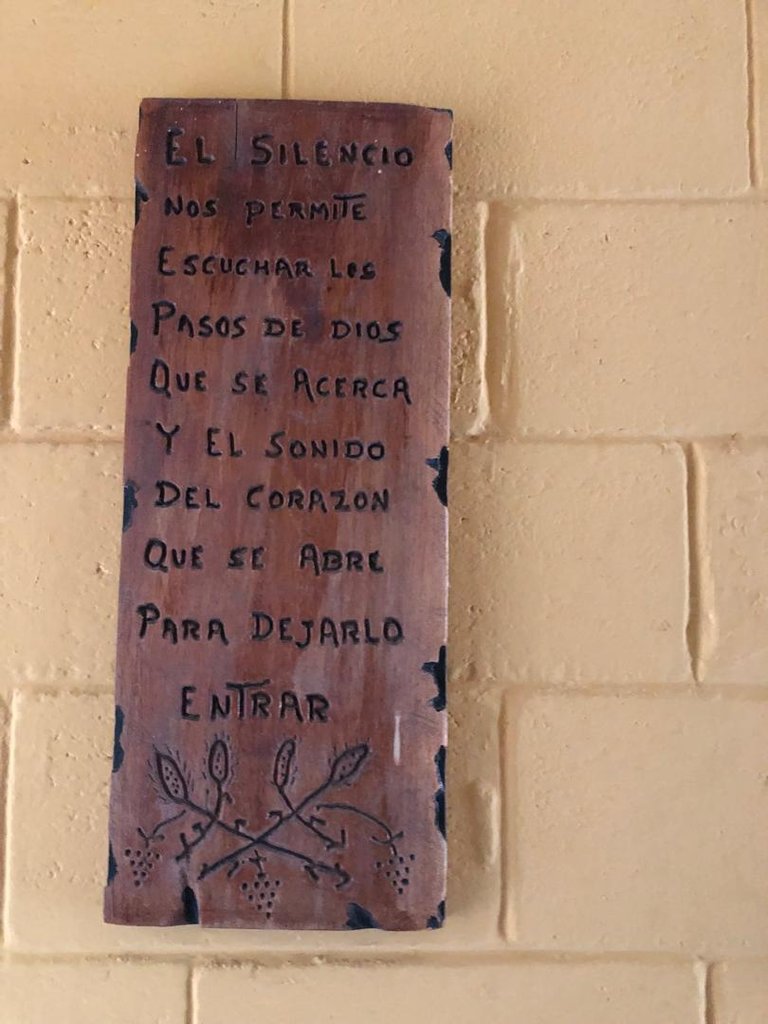 EL SILENCIO
NOS PERMITE
ESCUCHAR LOS
PASOS DE DIOS
QUE SE ACERCA
Y EL SONIDO
DEL CORAZON
QUE SE ABRE
PARA DEJARLO
ENTRAR